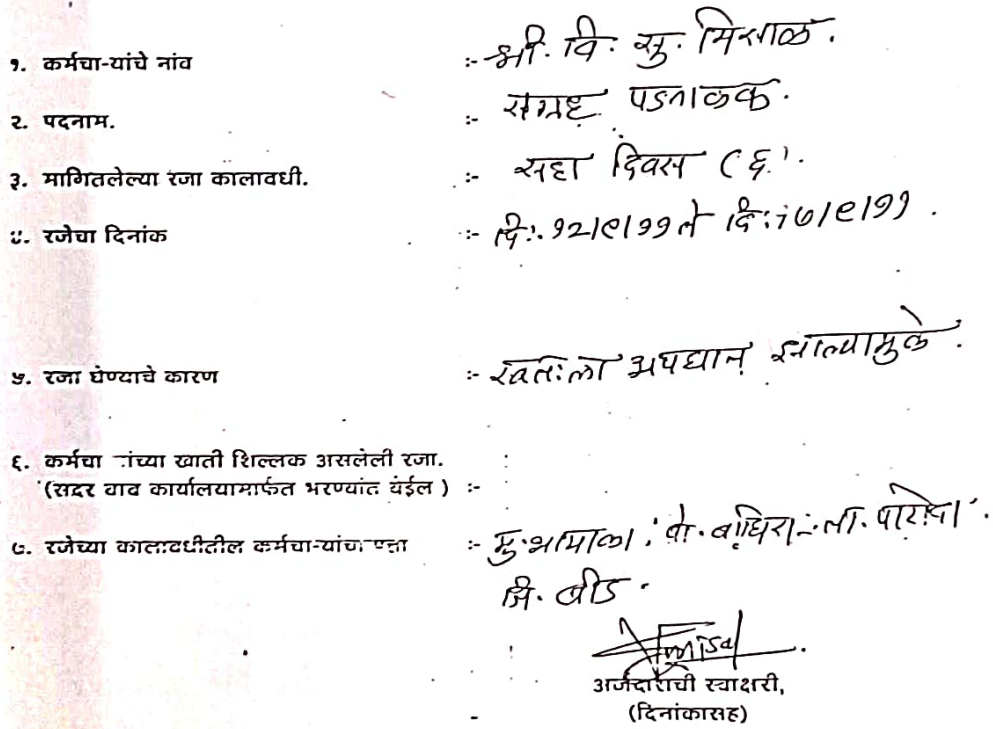 १. कर्मचा-यांचे नांव :- श्री. वि. सु. मिसाळ.
२. पदनाम. :- संग्रह पडताळक.
३. मागितलेल्या रजा कालावधी. :- सहा दिवस (६).
४. रजेचा दिनांक :- दि. १२/९/११ ते दि. १७/९/११.
५. रजा घेण्याचे कारण :- स्वतःला अपघात झाल्यामुळे.
६. कर्मचा यांच्या खाती शिल्लक असलेली रजा.
(सदर बाब कार्यालयामार्फत भरण्यांत येईल) :-
७. रजेच्या कालावधीतील कर्मचा-यांचा पत्ता :- मु. पो. ता.
जि. बीड.
अर्जदाराची स्वाक्षरी,
(दिनांकासह)